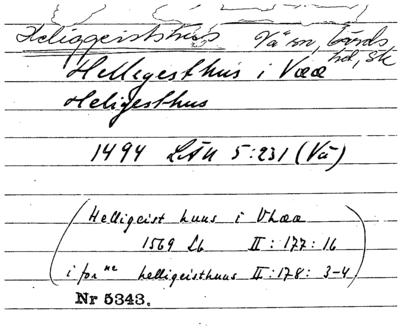 Heliggeisthus Vä sn, Gärds
hd, Sk
Hellegesthus i Vææ
Heligesthus
1494 LÄU 5:231 (Vä)
(Helligeist huus i Vhææ
1569 Lb II: 177: 16
i forne helligeisthuus II: 178: 3-4)
Nr 5343.